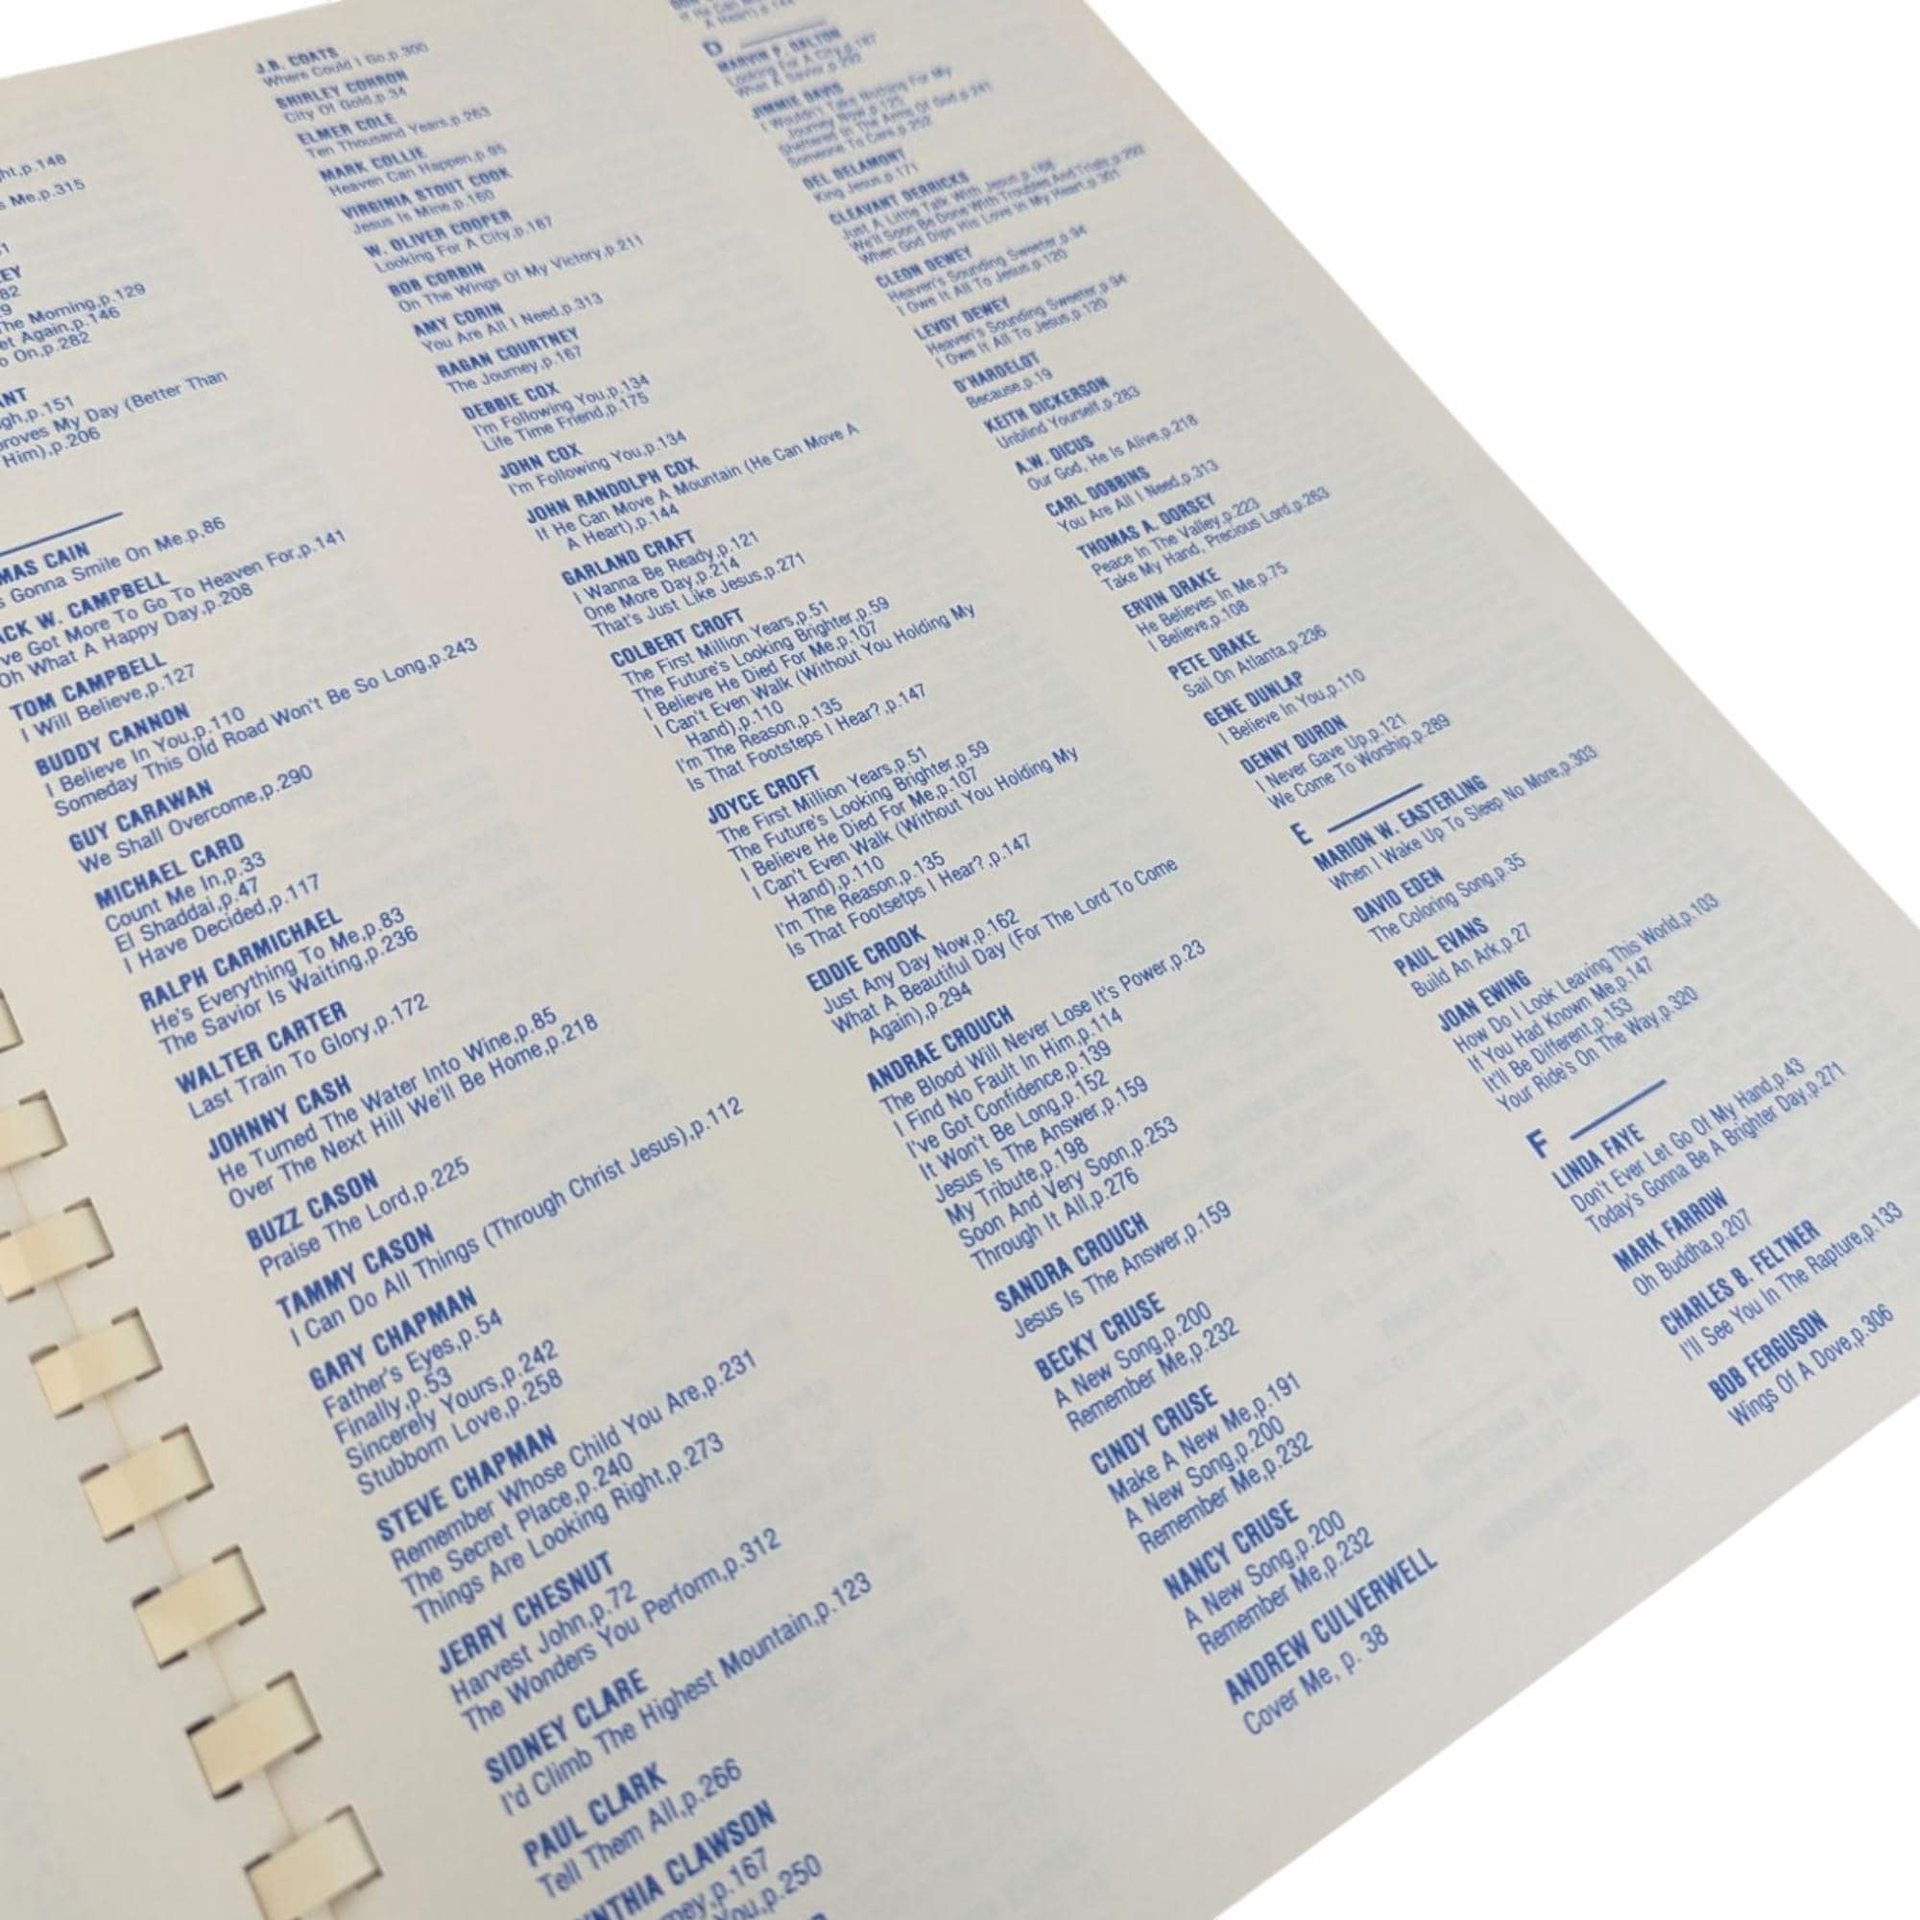 ht,p.148
s Me,p.315
EY
The Morning,p.129
et Again,p.146
o On,p.282
ANT
gh,p.151
proves My Day (Better Than
Him),p.206
MAS CAIN
s Gonna Smile On Me.p,86
ACK W. CAMPBELL
ve Got More To Go To Heaven For,p.141
Oh What A Happy Day,p.208
TOM CAMPBELL
I Will Believe,p.127
BUDDY CANNON
I Believe In You,p.110
Someday This Old Road Won't Be So Long,p.243
GUY CARAWAN
We Shall Overcome,p.290
MICHAEL CARD
Count Me In,p.33
El Shaddai,p.47
I Have Decided,p.117
RALPH CARMICHAEL
He's Everything To Me,p.83
The Savior Is Waiting,p.236
WALTER CARTER
Last Train To Glory,p.172
JOHNNY CASH
He Turned The Water Into Wine,p.85
Over The Next Hill We'll Be Home,p.218
BUZZ CASON
Praise The Lord,p.225
TAMMY CASON
I Can Do All Things (Through Christ Jesus),p.112
GARY CHAPMAN
Father's Eyes,p.54
Finally,p.53
Sincerely Yours,p.242
Stubborn Love,p.258
STEVE CHAPMAN
Remember Whose Child You Are,p.231
The Secret Place,p.240
Things Are Looking Right,p.273
JERRY CHESNUT
Harvest John,p.72
The Wonders You Perform,p.312
SIDNEY CLARE
I'd Climb The Highest Mountain,p.123
PAUL CLARK
Tell Them All,p.266
NTHIA CLAWSON
ney,p.167
You,p.250
J.R. COATS
Where Could I Go,p.300
SHIRLEY COHRON
City Of Gold,p.34
ELMER COLE
Ten Thousand Years,p.263
MARK COLLIE
Heaven Can Happen,p.95
VIRGINIA STOUT COOK
Jesus Is Mine,p.160
W. OLIVER COOPER
Looking For A City,p.187
BOB CORBIN
On The Wings Of My Victory,p.211
AMY CORIN
You Are All I Need,p.313
RAGAN COURTNEY
The Journey,p.167
DEBBIE COX
I'm Following You,p.134
Life Time Friend,p.175
JOHN COX
I'm Following You,p.134
JOHN RANDOLPH COX
If He Can Move A Mountain (He Can Move A
A Heart),p.144
GARLAND CRAFT
I Wanna Be Ready,p.121
One More Day,p.214
That's Just Like Jesus,p.271
COLBERT CROFT
The First Million Years,p.51
The Future's Looking Brighter,p.59
I Believe He Died For Me,p.107
I Can't Even Walk (Without You Holding My
Hand),p.110
I'm The Reason,p.135
Is That Footsteps I Hear?,p.147
JOYCE CROFT
The First Million Years,p.51
The Future's Looking Brighter,p.59
I Believe He Died For Me,p.107
I Can't Even Walk (Without You Holding My
Hand),p.110
I'm The Reason,p.135
Is That Footsetps I Hear?,p.147
EDDIE CROOK
Just Any Day Now,p.162
What A Beautiful Day (For The Lord To Come
Again),p.294
ANDRAE CROUCH
The Blood Will Never Lose It's Power,p.23
I Find No Fault In Him,p.114
I've Got Confidence,p.139
It Won't Be Long,p.152
Jesus Is The Answer,p.159
My Tribute,p.198
Soon And Very Soon,p.253
Through It All,p.276
SANDRA CROUCH
Jesus Is The Answer,p.159
BECKY CRUSE
A New Song,p.200
Remember Me,p.232
CINDY CRUSE
Make A New Me,p.191
A New Song,p.200
Remember Me,p.232
NANCY CRUSE
A New Song,p.200
Remember Me,p.232
ANDREW CULVERWELL
Cover Me, p. 38
A Heart),p.144
D
MARVIN P. DALTON
Looking For A City,p.187
What A Savior,p.292
JIMMIE DAVIS
I Wouldn't Take Nothing For My
Journey Now,p.125
Sheltered In The Arms Of God,p.241
Someone To Care,p.252
DEL DELAMONT
King Jesus,p.171
CLEAVANT DERRICKS
Just A Little Talk With Jesus,p.168
We'll Soon Be Done With Troubles And Trials,p.292
When God Dips His Love In My Heart,p.301
CLEON DEWEY
Heaven's Sounding Sweeter,p.94
I Owe It All To Jesus,p.120
LEVOY DEWEY
Heaven's Sounding Sweeter,p.94
I Owe It All To Jesus,p.120
D'HARDELOT
Because,p.19
KEITH DICKERSON
Unblind Yourself,p.283
A.W. DICUS
Our God, He Is Alive,p.218
CARL DOBBINS
You Are All I Need,p.313
THOMAS A. DORSEY
Peace In The Valley,p.223
Take My Hand, Precious Lord,p.263
ERVIN DRAKE
He Believes In Me,p.75
I Believe,p.108
PETE DRAKE
Sail On Atlanta,p.236
GENE DUNLAP
I Believe In You,p.110
DENNY DURON
I Never Gave Up,p.121
We Come To Worship,p.289
E
MARION W. EASTERLING
When I Wake Up To Sleep No More,p.303
DAVID EDEN
The Coloring Song,p.35
PAUL EVANS
Build An Ark,p.27
JOAN EWING
How Do I Look Leaving This World,p.103
If You Had Known Me,p.147
It'll Be Different,p.153
Your Ride's On The Way,p.320
F
LINDA FAYE
Don't Ever Let Go Of My Hand,p.43
Today's Gonna Be A Brighter Day,p.271
MARK FARROW
Oh Buddha,p.207
CHARLES B. FELTNER
I'll See You In The Rapture,p.133
BOB FERGUSON
Wings Of A Dove,p.306